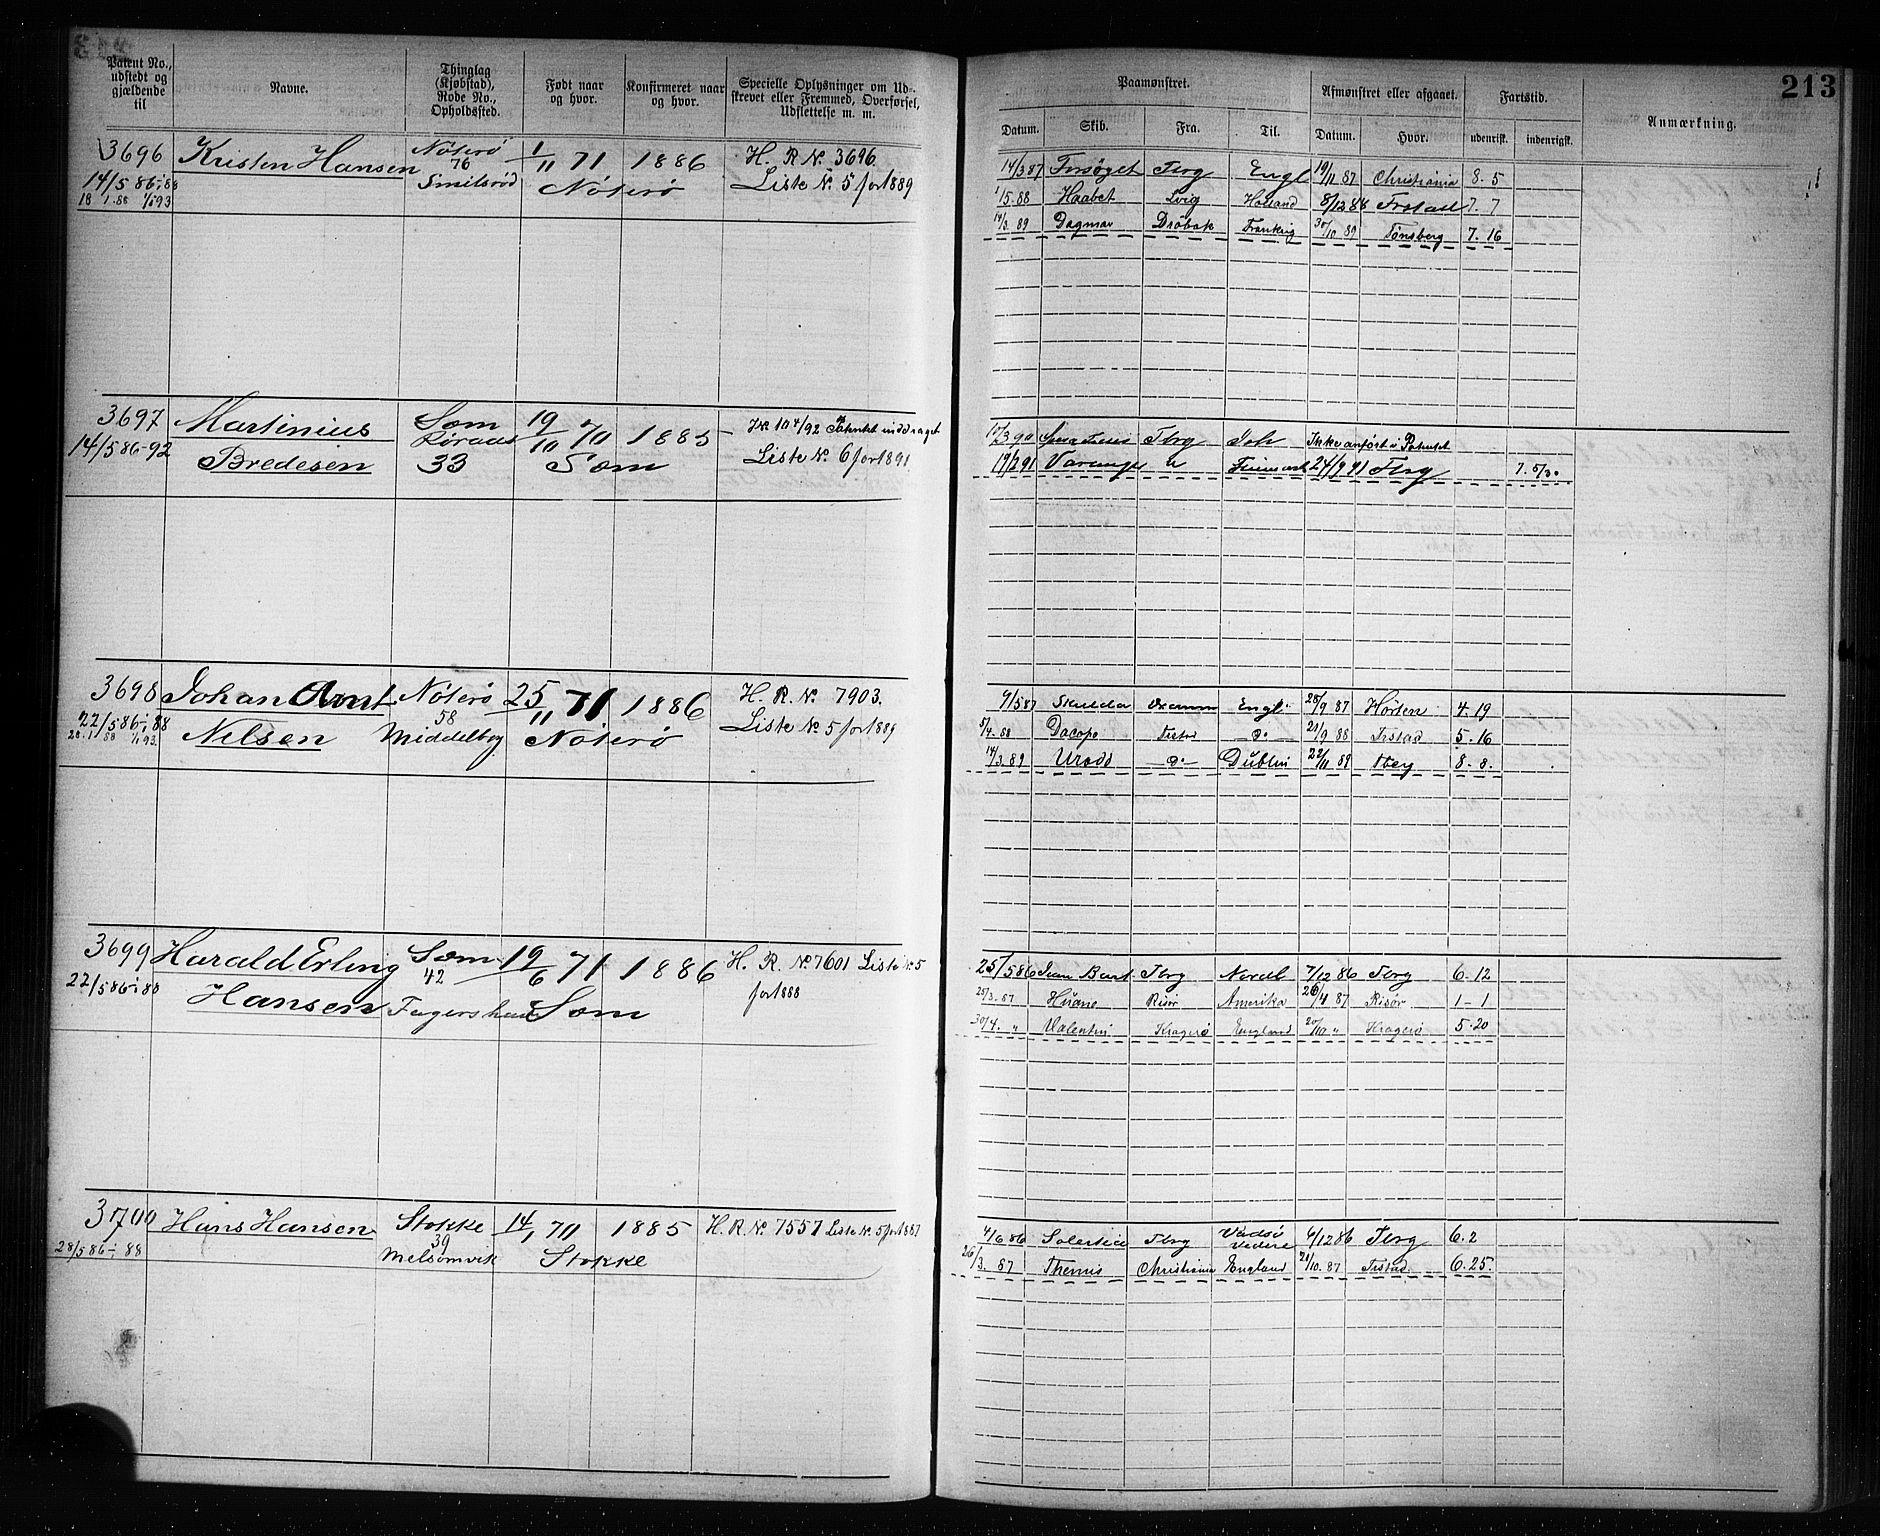 213
Patent No., udstedt og gjældende til
Navne.
Thinglag (Kjøbstad), Rode No., Opholdssted.
Født naar og hvor.
Konfirmeret naar og hvor.
Specielle Oplysninger om Udskrevet eller Fremmed, Overførsel, Udslettelse m. m.
Paamønstret.
Afmønstret eller afgaaet.
Fartstid.
Anmærkning.
Datum. Skib. Fra. Til. Datum. Hvor. udenrisk. indenrigsk.
3696 Kristen Hansen Nøterø 1/11 71 1886 H. R No. 3696.
14/5 86 88 76 Smilsrød Nøterø Liste No. 5 for 1889
18 1.88 1/1 93
14/3 87 Forsøget Tbrg Engl 19/11 87 Christiania 8. 5
1/5. 88 Haabet Svig Holland 8/12 88 Frstad 7. 7
14/3. 89 Dagmar Drøbak Frankrig 30/10 89 Tønsberg 7. 16
3697 Martinius Sæm 19/10 70 1885 10 4/92 Patentet inddraget
14/5 86-92 Bredesen 33 Sæm Liste No. 6 for 1891
3 90 Tbrg Ikke anført i Patentet
19/2 91 Varange " 24/9 91 Tbrg 7. 5/30
3698 Johan Arnt Nøterø 25/11 71 1886 H. R. No. 7903.
22/5 86 88 Nilsen 58 Middelbog Nøterø Liste No. 5 for 1889
9/5 87 Engl. 28/9 87 Horten 4. 19
5/4. 88 Dacapo Frstad 21/9 88 Frstad 5. 16
14/3. 89 Urædd Dublin 22/11 89 Tberg 8. 8.
3699 Harald Erling Sæm 19/6 71 1886 H. R. No. 7601 Liste No. 5
22/5 86 88 Hansen 42 Sæm for 1888
25/5 86 Tbrg 7/12 86 Tbrg 6. 12
25/3. 87 Risør Amerika 26/4 87 Risør 1 - 1
30/4. " Valentin Kragerø England 20/10 " Kragerø 5. 20
3700 Hans Hansen Stokke 14/1 70 1885 H. R. No. 7557 Liste No. 5 for 1887
28/5 86 88 39 Melsomvik Stokke
4/6 86 Tbrg Vadsø 6/12 86 Tbrg 6. 2
26/3. 87 Themis Christiania England 21/10. 87 Frstad 6. 25.